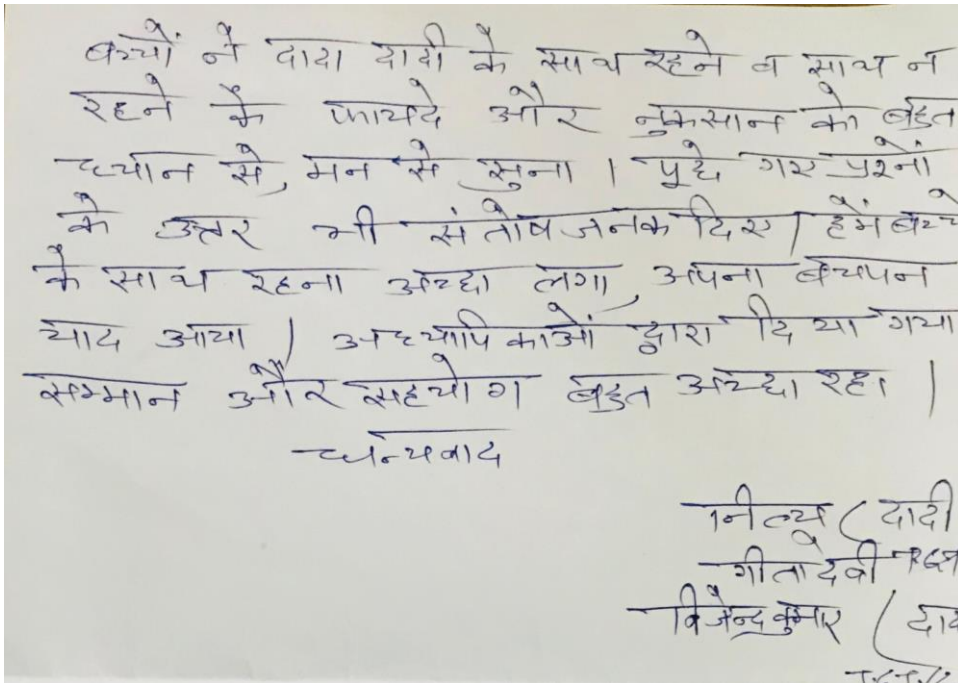 बच्चों ने दादा दादी के साथ रहने व साथ न
रहने के फायदे और नुकसान को बहुत
ध्यान से, मन से सुना । पूछे गए प्रश्नों
के उत्तर भी संतोषजनक दिए । हमें बच्चे
के साथ रहना अच्छा लगा, अपना बचपन
याद आया । अध्यापिकाओं द्वारा दिया गया
सम्मान और सहयोग बहुत अच्छा रहा ।
धन्यवाद
(दादी
गीता देवी
विजेन्द्र कुमार (दाद